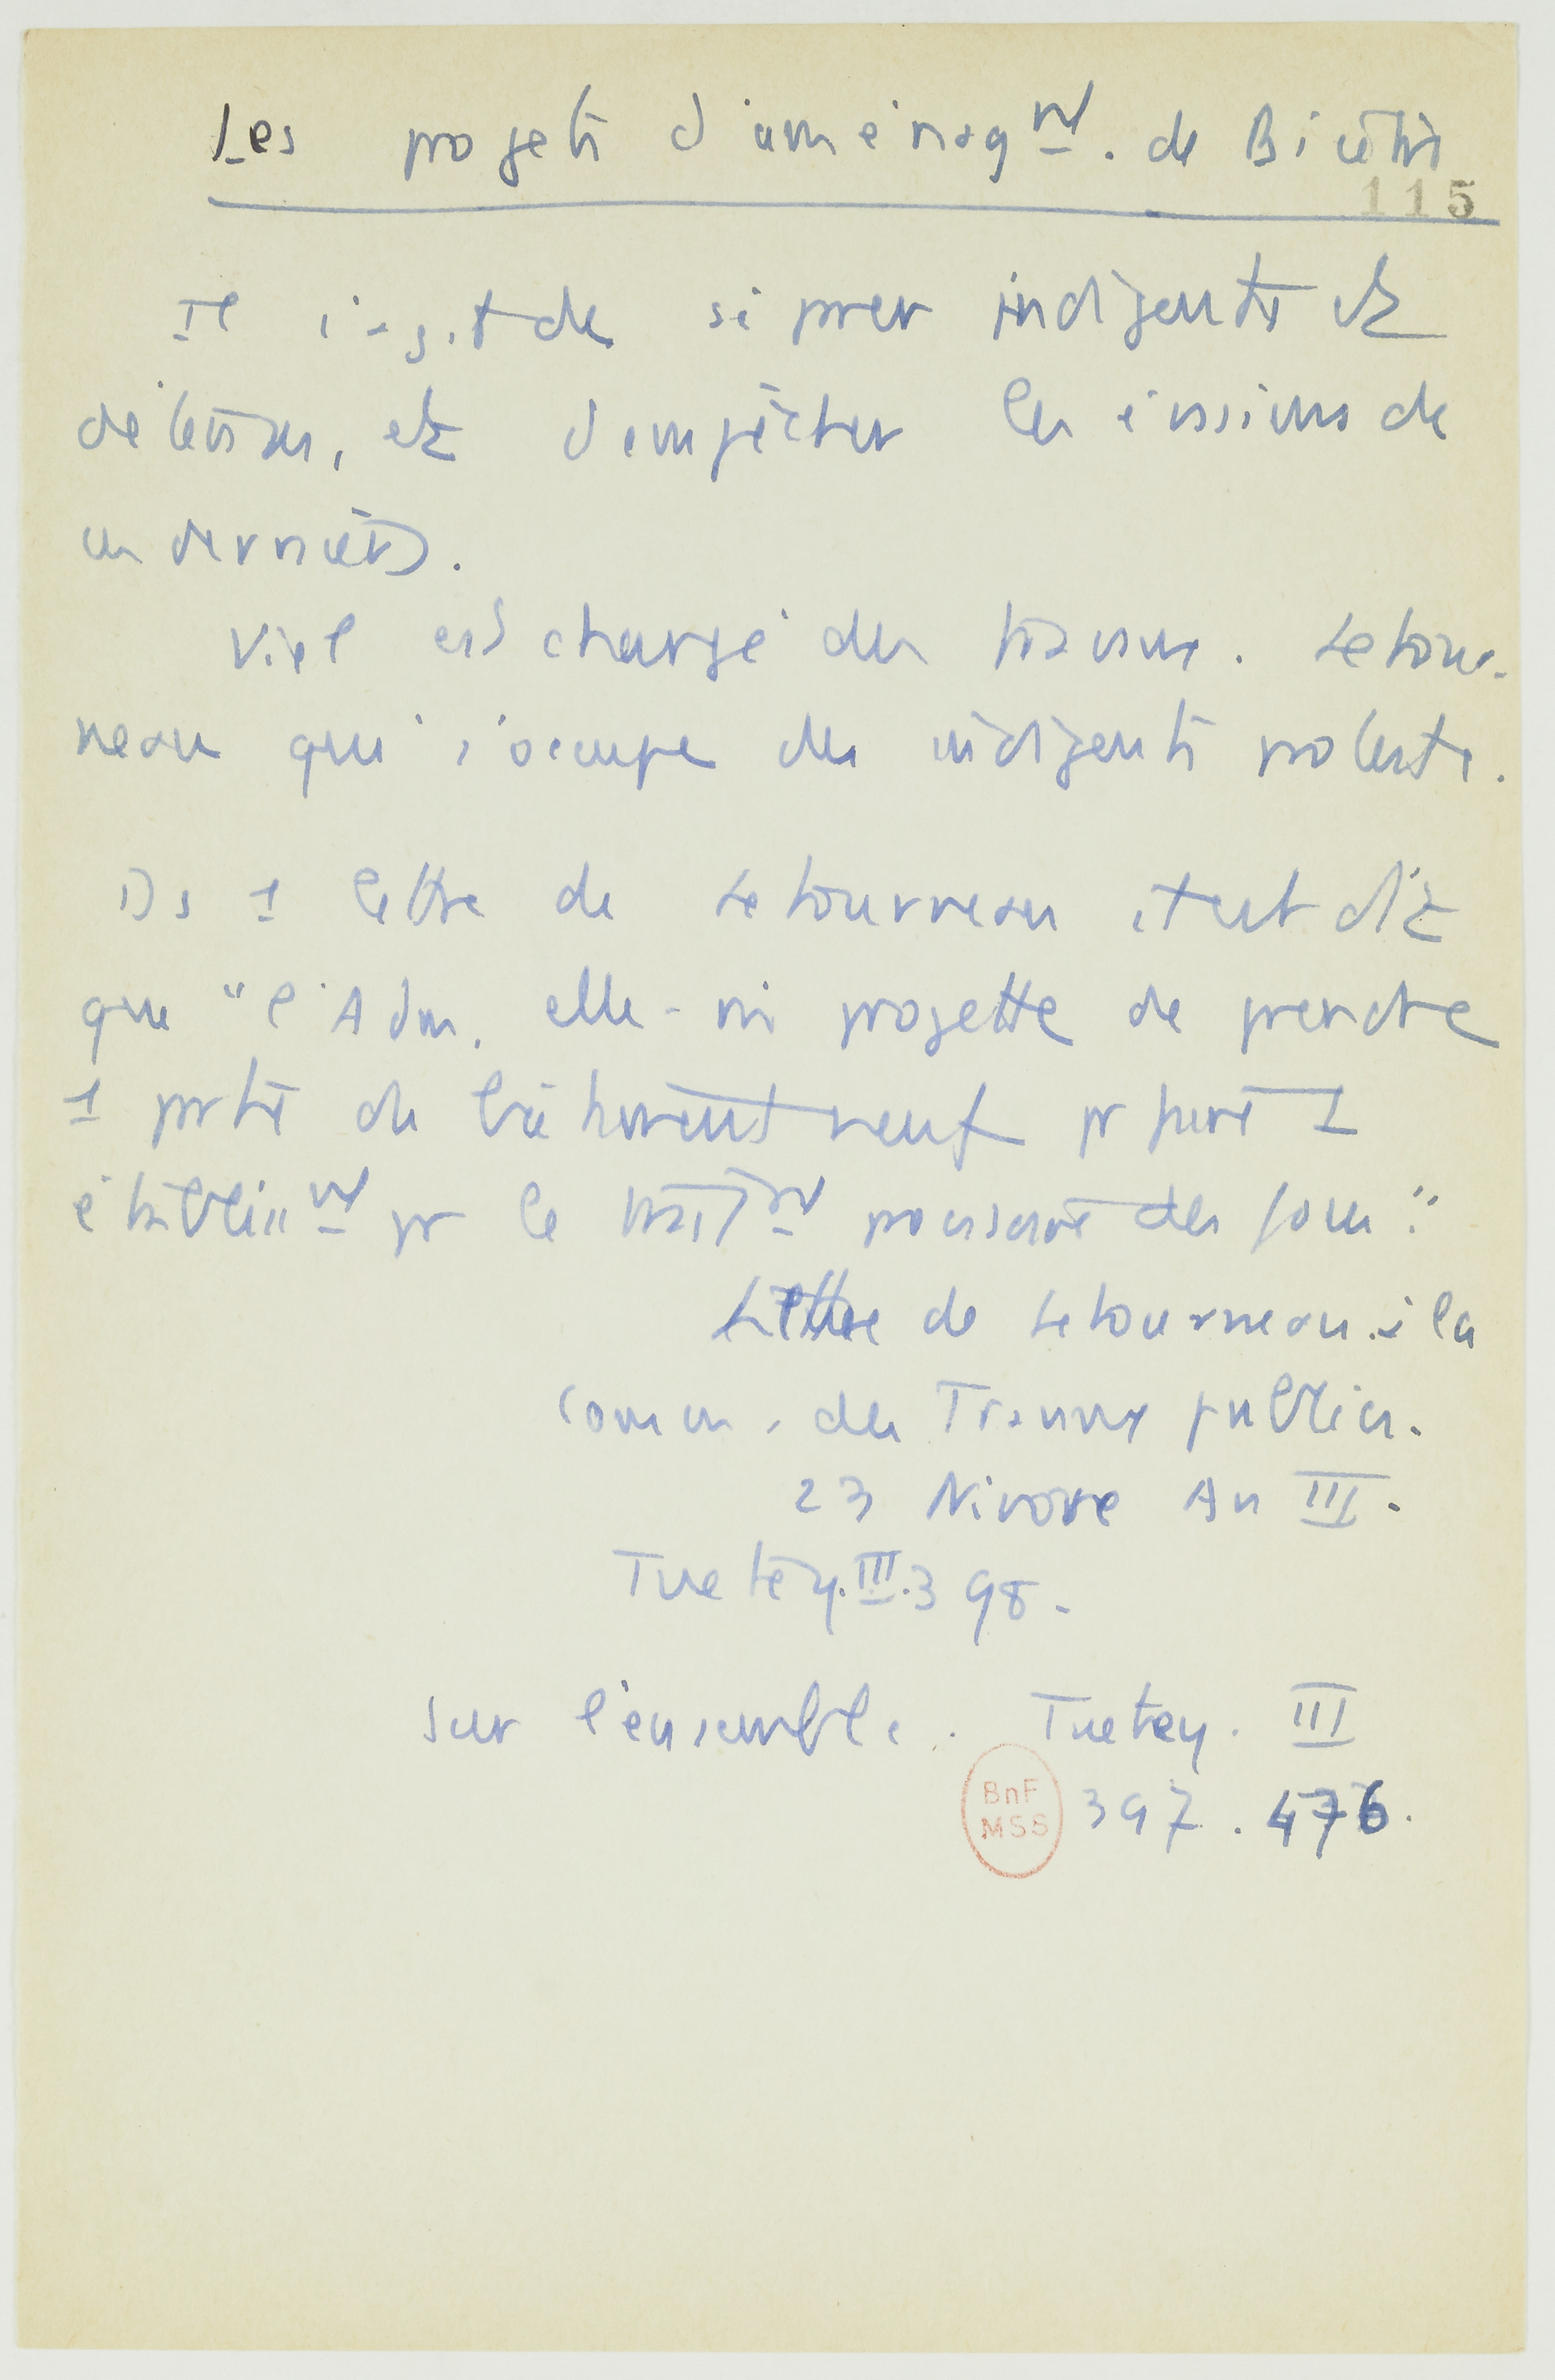 Les projets d'aménagmt. de Bicêtre
115
Il s'agit de séparer indigents et
détenus, et d'empêcher les évasions de
ces derniers.
Viel est chargé des travaux. Letour-
neau qui s'occupe des indigents proteste.
Ds 1 lettre de Letourneau il est dit
que "l'Adm. elle-m projette de prendre
1 partie de bâtiment neuf pr faire 1
établissmt pr le traitmt provisoire des fous".
Lettre de Letourneau à la
Comm. des Travaux publics.
23 Nivose An III.
Tuetey. III. 398.
Sur l'ensemble. Tuetey. III
BnF
MSS
397. 476.